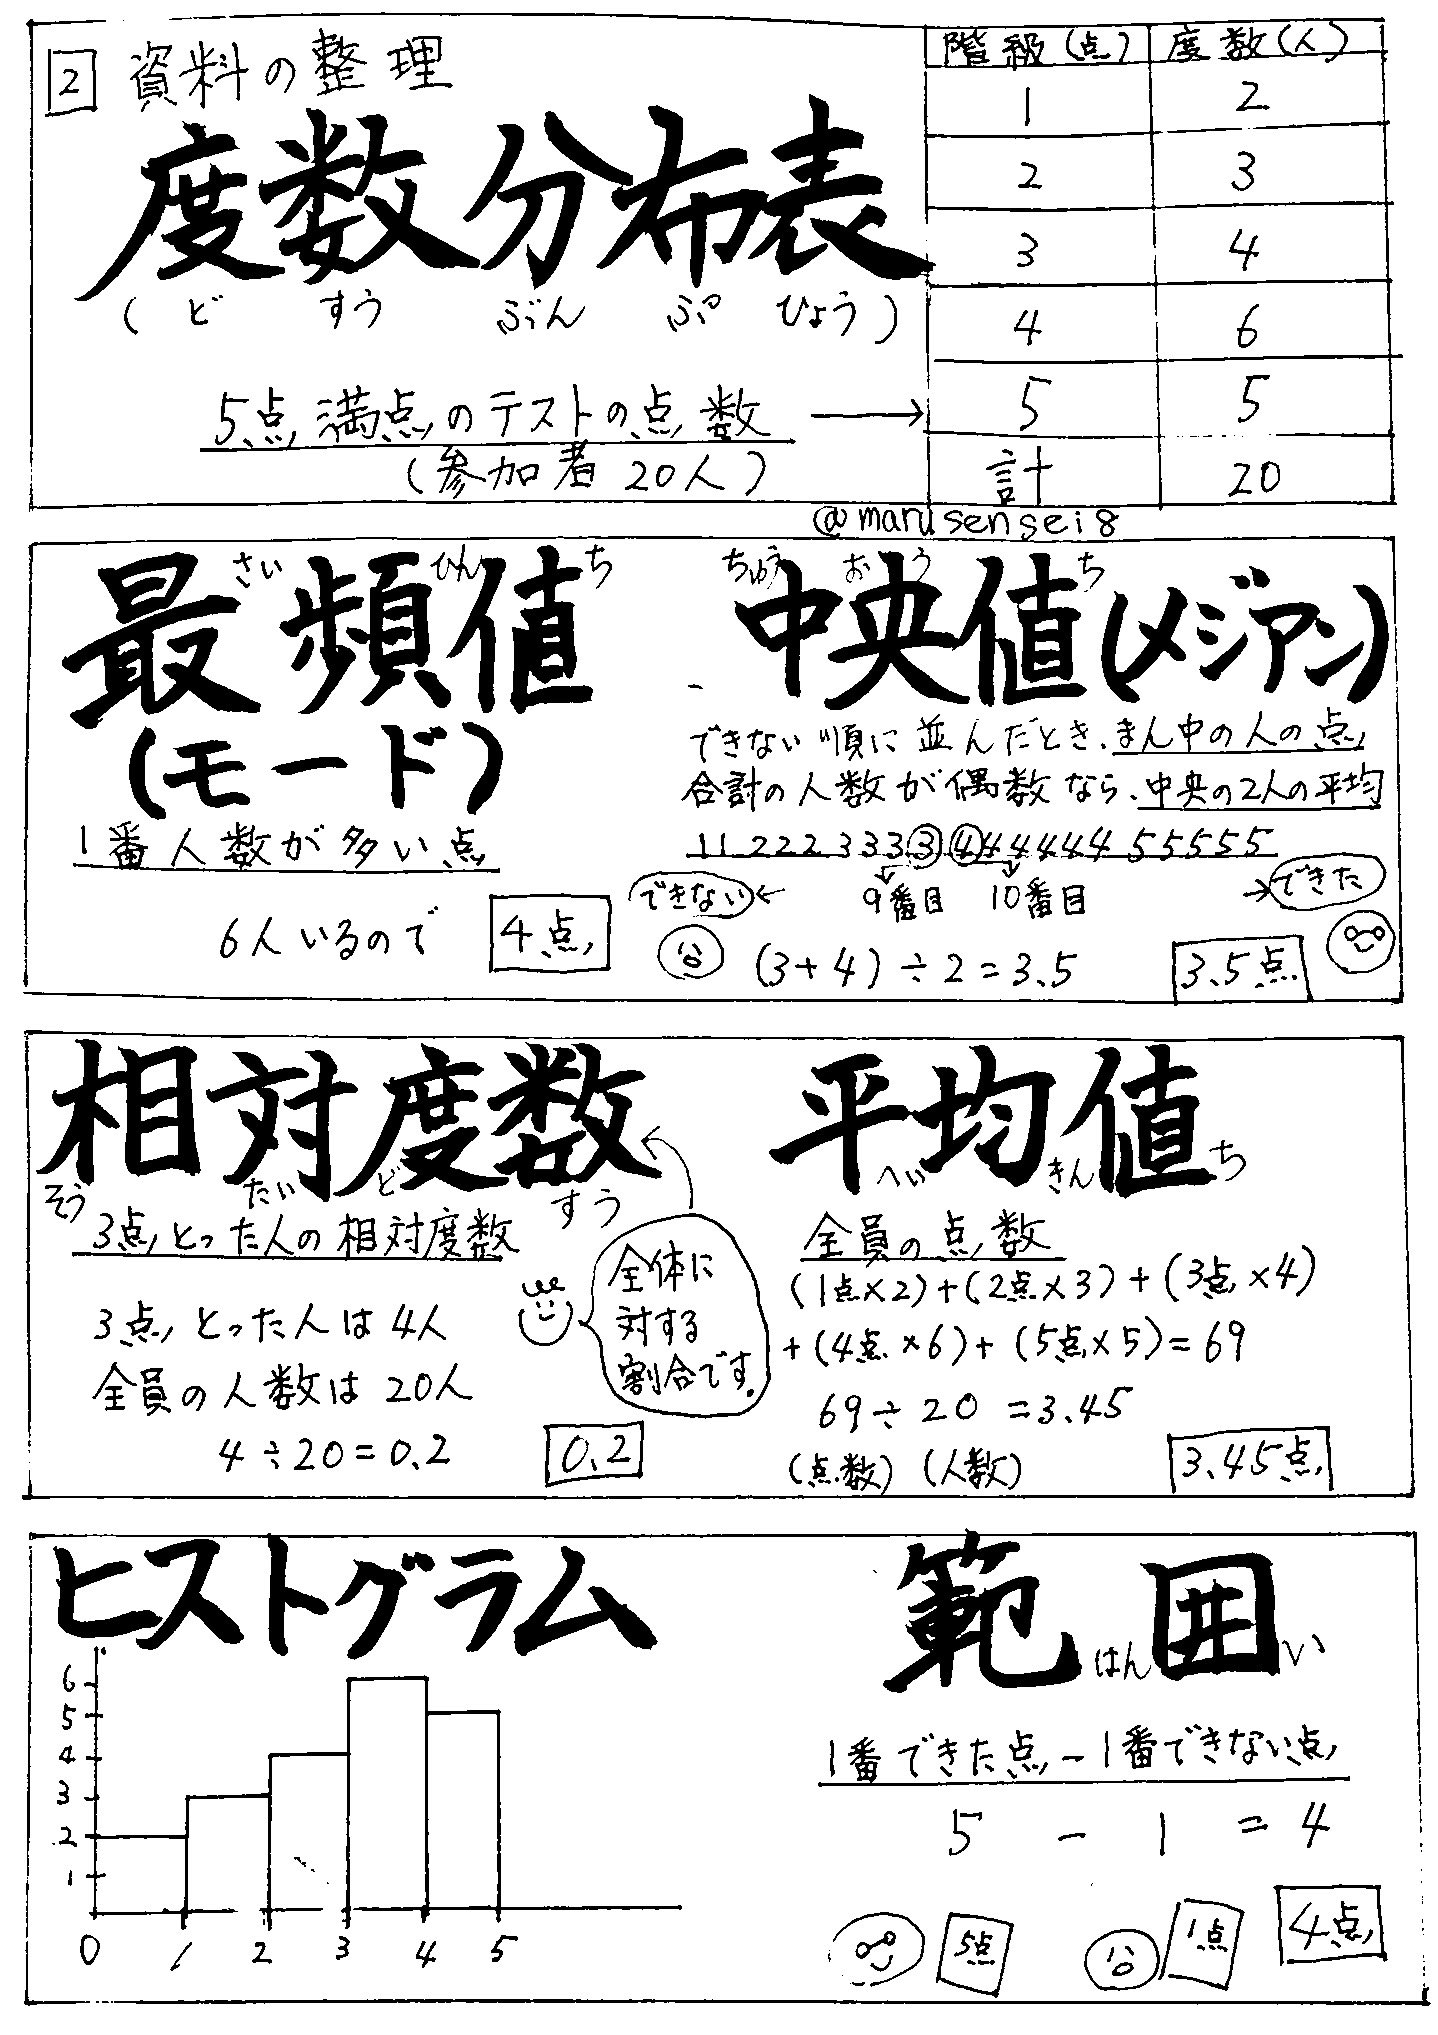 2 資料の整理
度数分布表
(ど すう ぶん ぷ ひょう)
5点満点のテストの点数 →
(参加者 20人)
階級(点) 度数(人)
1 2
2 3
3 4
4 6
5 5
計 20
@marusensei8
さい ひん ち
最頻値
(モード)
1番人数が多い点
6人いるので 4点
ちゅう おう ち
中央値(メジアン)
できない順に並んだとき、まん中の人の点
合計の人数が偶数なら、中央の2人の平均
11 222 333③ ④44444 55555
できない← 9番目 10番目 →できた
(3+4)÷2=3.5 3.5点
相対度数
そう たい ど すう
3点とった人の相対度数
3点とった人は4人
全員の人数は20人
4÷20=0.2 0.2
全体に
対する
割合です。
平均値
へい きん ち
全員の点数
(1点×2)+(2点×3)+(3点×4)
+(4点×6)+(5点×5)=69
69÷20=3.45
(点数) (人数) 3.45点
ヒストグラム
6
5
4
3
2
1
0 1 2 3 4 5
範囲
はん い
1番できた点-1番できない点
5 - 1 = 4
5点 1点 4点